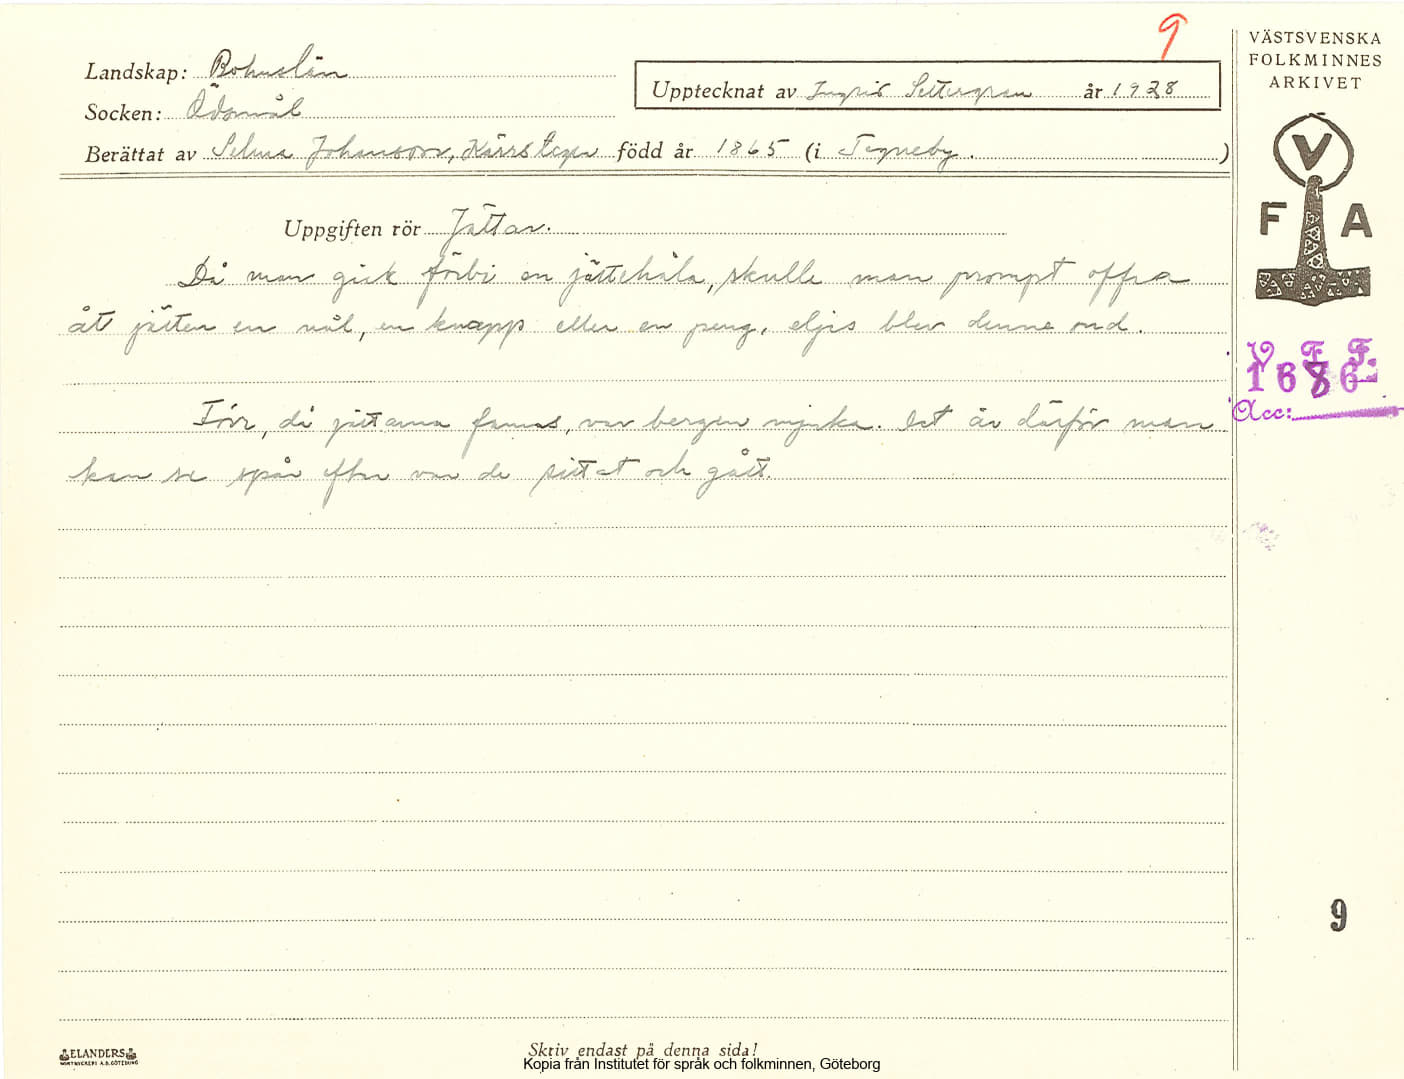 9
VÄSTSVENSKA
FOLKMINNES
ARKIVET
Landskap: Bohuslän
Upptecknat av Ingrid Settergren år 1928
Socken: Ödsmål
Berättat av Selma Johansson, född år 1865 (i Tegneby.)
V
F A
Uppgiften rör Jättar.
Då man gick förbi en jättehåla, skulle man prompt offra
åt jätten en nål, en knapp eller en peng, eljes blev denne ond.
V. F. F.
1686
Acc:
Förr, då jättarna fanns, var bergen mjuka. Det är därför man
kan se spår efter var de sittat och gått.
9
ELANDERS
Skriv endast på denna sida!
Kopia från Institutet för språk och folkminnen, Göteborg